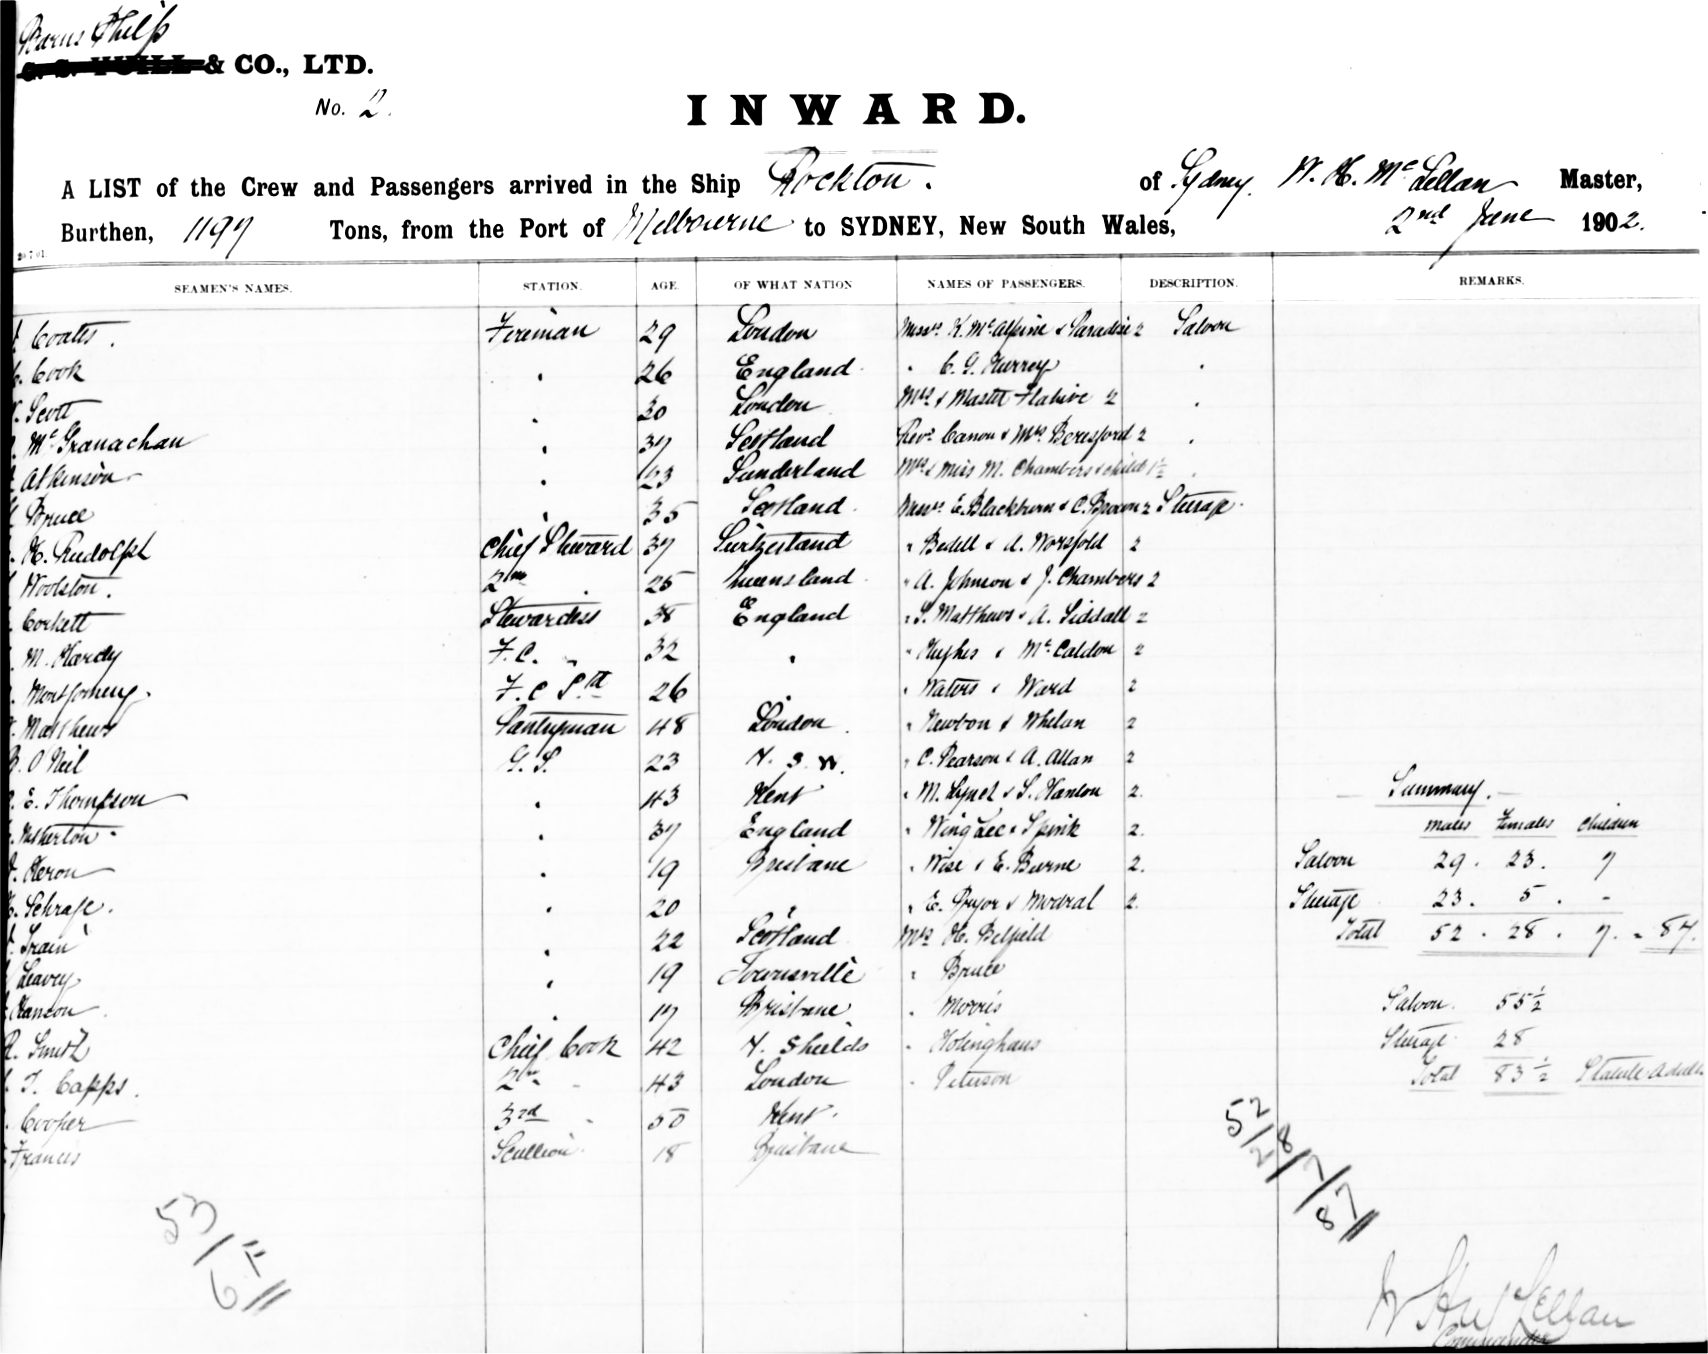 Burns Philp
& CO., LTD.
No. 2.
INWARD.
A LIST of the Crew and Passengers arrived in the Ship Rockton. of Sydney W. H. McLellan Master,
Burthen, 1197 Tons, from the Port of Melbourne to SYDNEY, New South Wales, 2nd June 1902.
SEAMEN'S NAMES. STATION. AGE. OF WHAT NATION NAMES OF PASSENGERS. DESCRIPTION. REMARKS.
Coates. Fireman 29 London Messrs. K. McAlpine & Paradise 2 Saloon
Cook " 26 England " C. G. Hurrey "
Scott " 30 London Mrs & Master Flahive 2 "
McGranachan " 37 Scotland Revd Canon & Mrs Beresford 2 "
Atkinson " 23 Sunderland Mrs & Miss M. Chambers & child 1½ "
Bruce " 35 Scotland. Messrs. E. Blackburn & C. Brown 2 Steerage.
H. Rudolph Chief Steward 37 Switzerland " Bedell & A. Worsfold 2
Woolston. 2nd " 25 Queensland " A. Johnson & J. Chambers 2
Corkett Stewardess 38 England " S. Matthews & A. Siddall 2
M. Hardy F.C. " 32 " " Hughes & McCaldon 2
Montgomery. F.C. Std 26 " " Waters & Ward 2
Matthews Pantryman 48 London. " Newton & Whelan 2
O'Neil G.S. 23 N.S.W. " C. Pearson & A. Allan 2
E. Thompson " 43 Kent " M. Lynch & S. Hanlon 2. Summary.
" 37 England " Wing Lee & Spink 2. Males Females Children
Heron " 19 Brisbane " Wise & E. Burne 2. Saloon 29. 23. 7
Schrafe. " 20 " " E. Pryor & 2. Steerage 23. 5. -
Train " 22 Scotland Mrs H. Belfield Total 52. 28. 7. = 87.
Leavey " 19 Townsville " Bruce
Hanson. " 17 Brisbane " Morris Saloon. 55½
R. Smith Chief Cook 42 N. Shields " Steerage 28
T. Capps. 2nd " 43 London " Peterson Total 83½ Statute Adults
Cooper 3rd " 50 Kent.
Francis Scullion. 18 Brisbane
52/28/7/87//
53/
W H McLellan
Commander